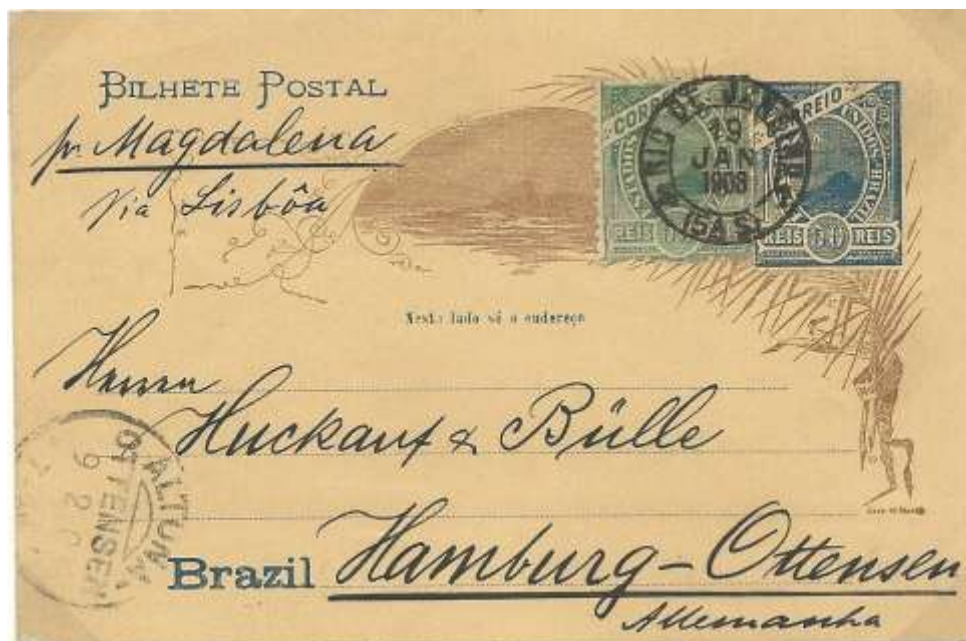 BILHETE POSTAL
pr Magdalena
Via Lisbôa
CORREIO
ESTADOS
REIS
RIO DE JANEIRO
19
JAN
1903
(5A S)
CORREIO
UNIDOS BRAZIL
REIS 50 REIS
Neste lado só o endereço
Herren
Huckauf & Bülle
ALTONA
OTTENSEN
9 2
Brazil Hamburg - Ottensen
Allemanha